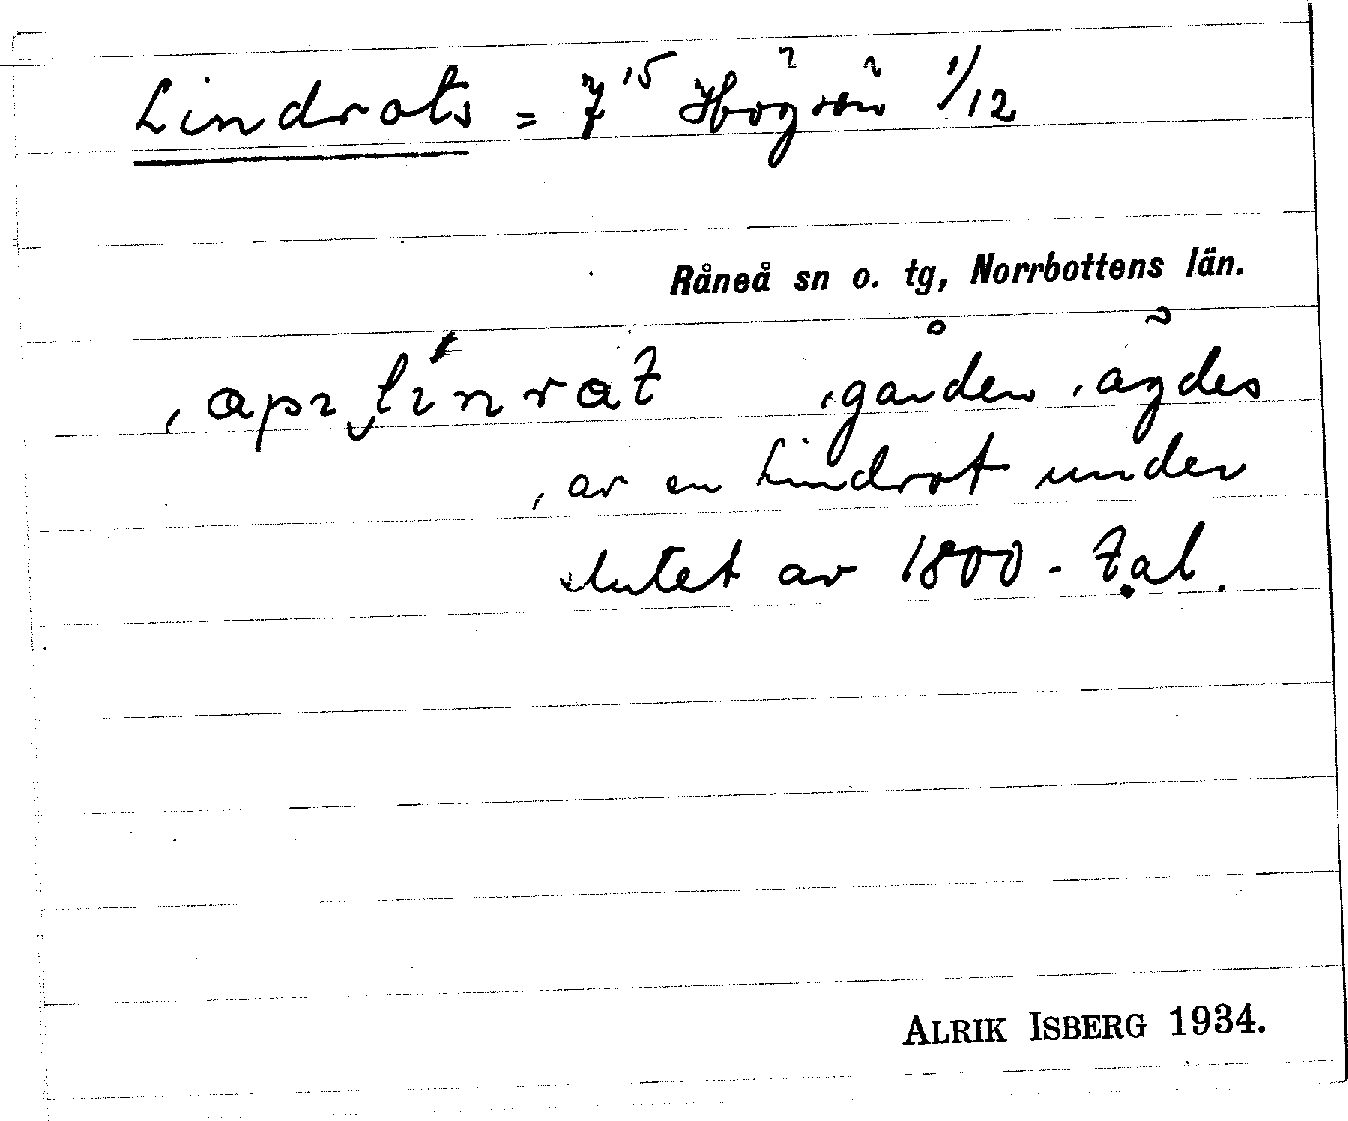 Lindrots = 7¹⁵ Högsön 1/12
Råneå sn o. tg, Norrbottens län.
, gården , ägdes
, av en Lindrot under
slutet av 1800-tal.
ALRIK ISBERG 1934.